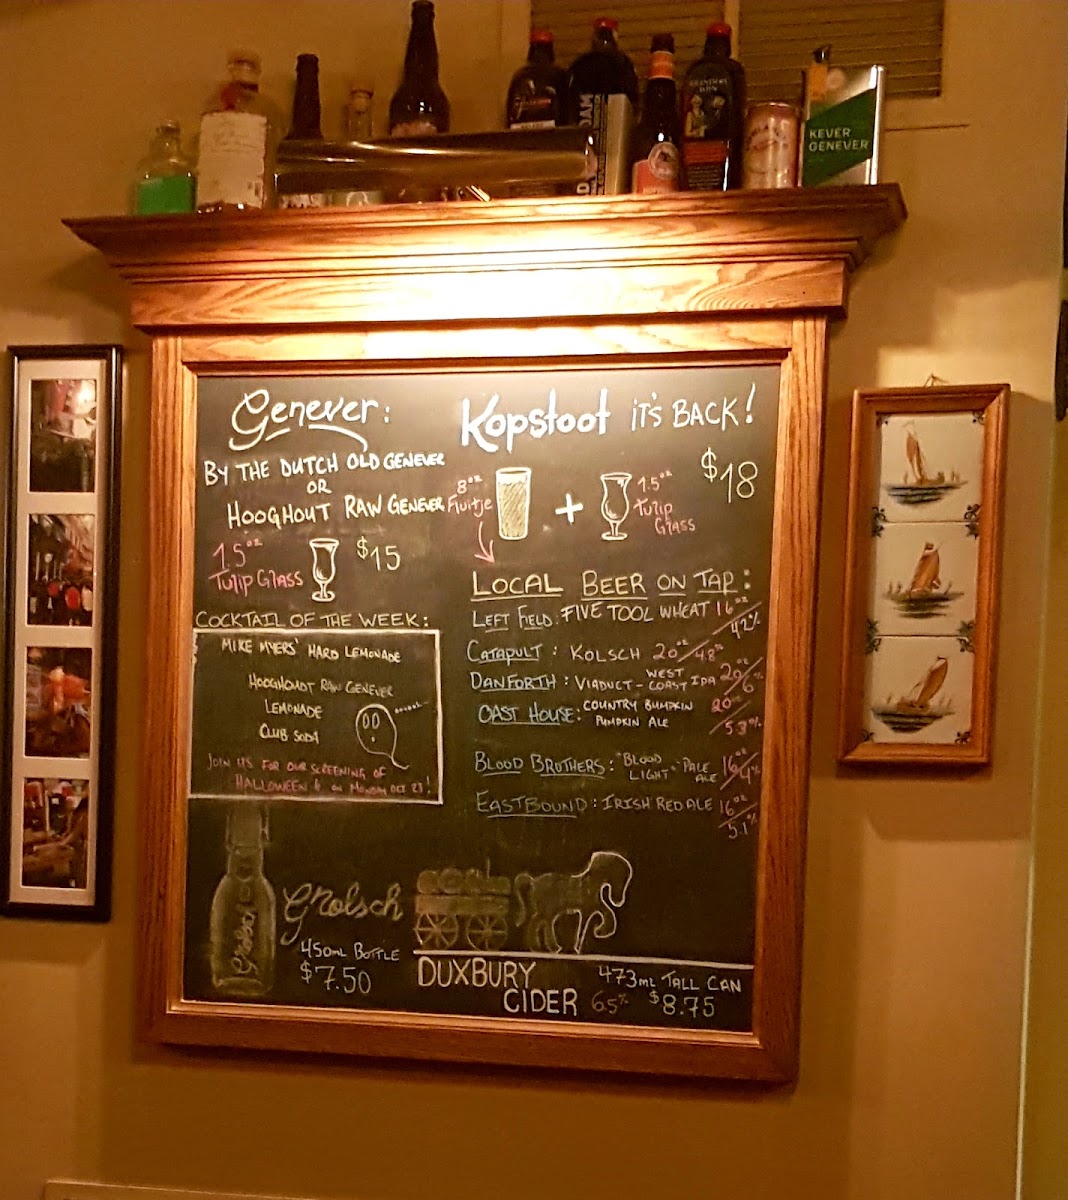 KEVER
GENEVER
Genever:
BY THE DUTCH OLD GENEVER
OR
HOOGHOUT RAW GENEVER
1.5oz
TULIP GLASS
$15
Kopstoot IT'S BACK!
8oz
Fluitje
+
1.5oz
TULIP
GLASS
$18
COCKTAIL OF THE WEEK:
MIKE MYERS' HARD LEMONADE
HOOGHOUDT RAW GENEVER
LEMONADE
CLUB SODA
JOIN US FOR OUR SCREENING OF
HALLOWEEN 6 ON MONDAY OCT 23!
LOCAL BEER ON TAP:
LEFT FIELD: FIVE TOOL WHEAT 16oz/4.2%
CATAPULT: KOLSCH 20oz/4.8%
DANFORTH: VIADUCT - WEST COAST IPA 20oz/6%
OAST HOUSE: COUNTRY BUMPKIN PUMPKIN ALE 20oz/5.3%
BLOOD BROTHERS: "BLOOD LIGHT" PALE ALE 16oz/4%
EASTBOUND: IRISH RED ALE 16oz/5.1%
Grolsch
Grolsch
450mL BOTTLE
$7.50
DUXBURY
CIDER
473mL TALL CAN
6.5% $8.75